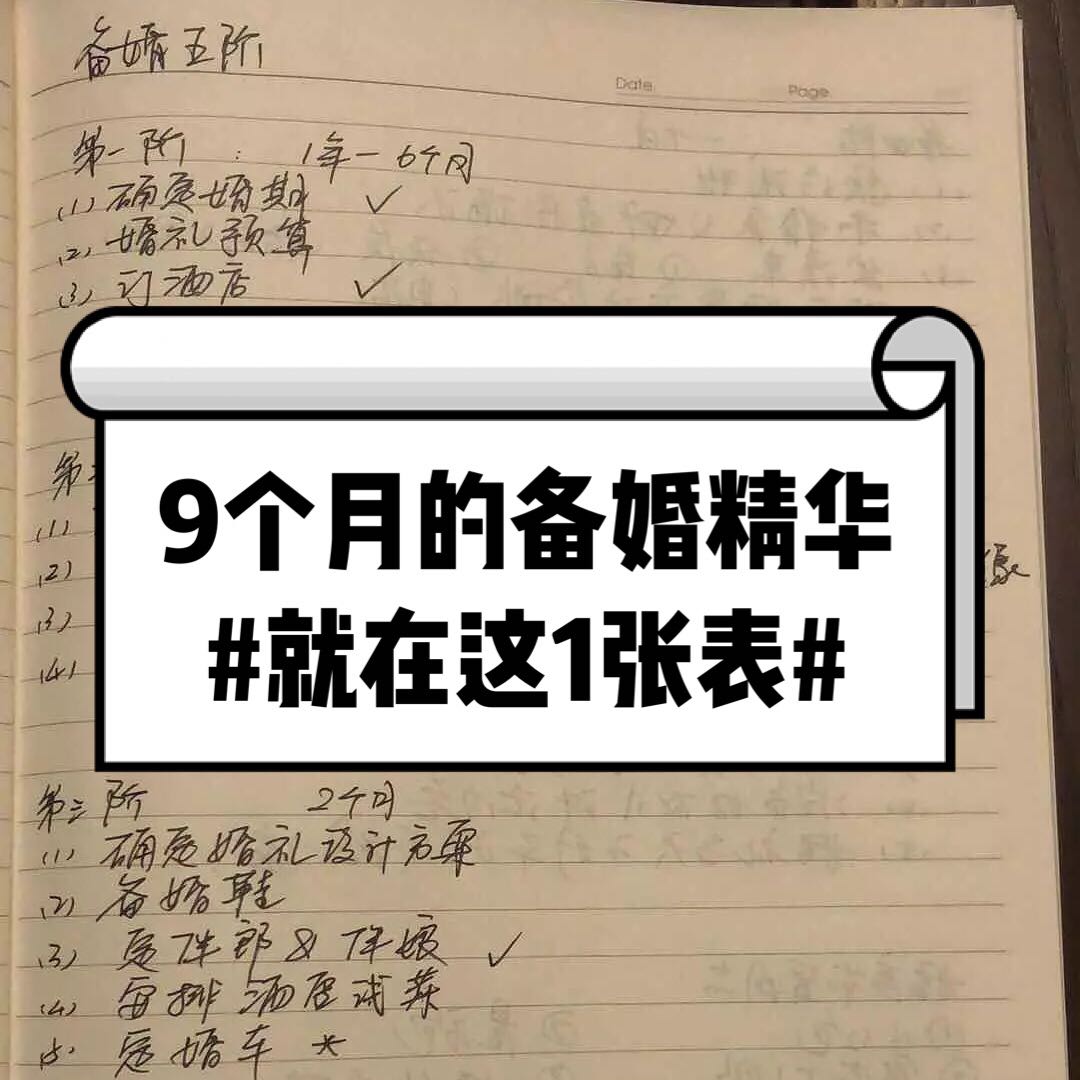 备婚五阶
Date.
Page
第一阶 : 1年-6个月
(1) 确定婚期 ✓
(2) 婚礼预算
(3) 订酒店 ✓
9个月的备婚精华
#就在这1张表#
第
(1)
(2)
(3)
(4)
第三阶 2个月
(1) 确定婚礼设计方案
(2) 备婚鞋
(3) 定伴郎&伴娘 ✓
(4) 安排酒店试菜
(5) 定婚车 *